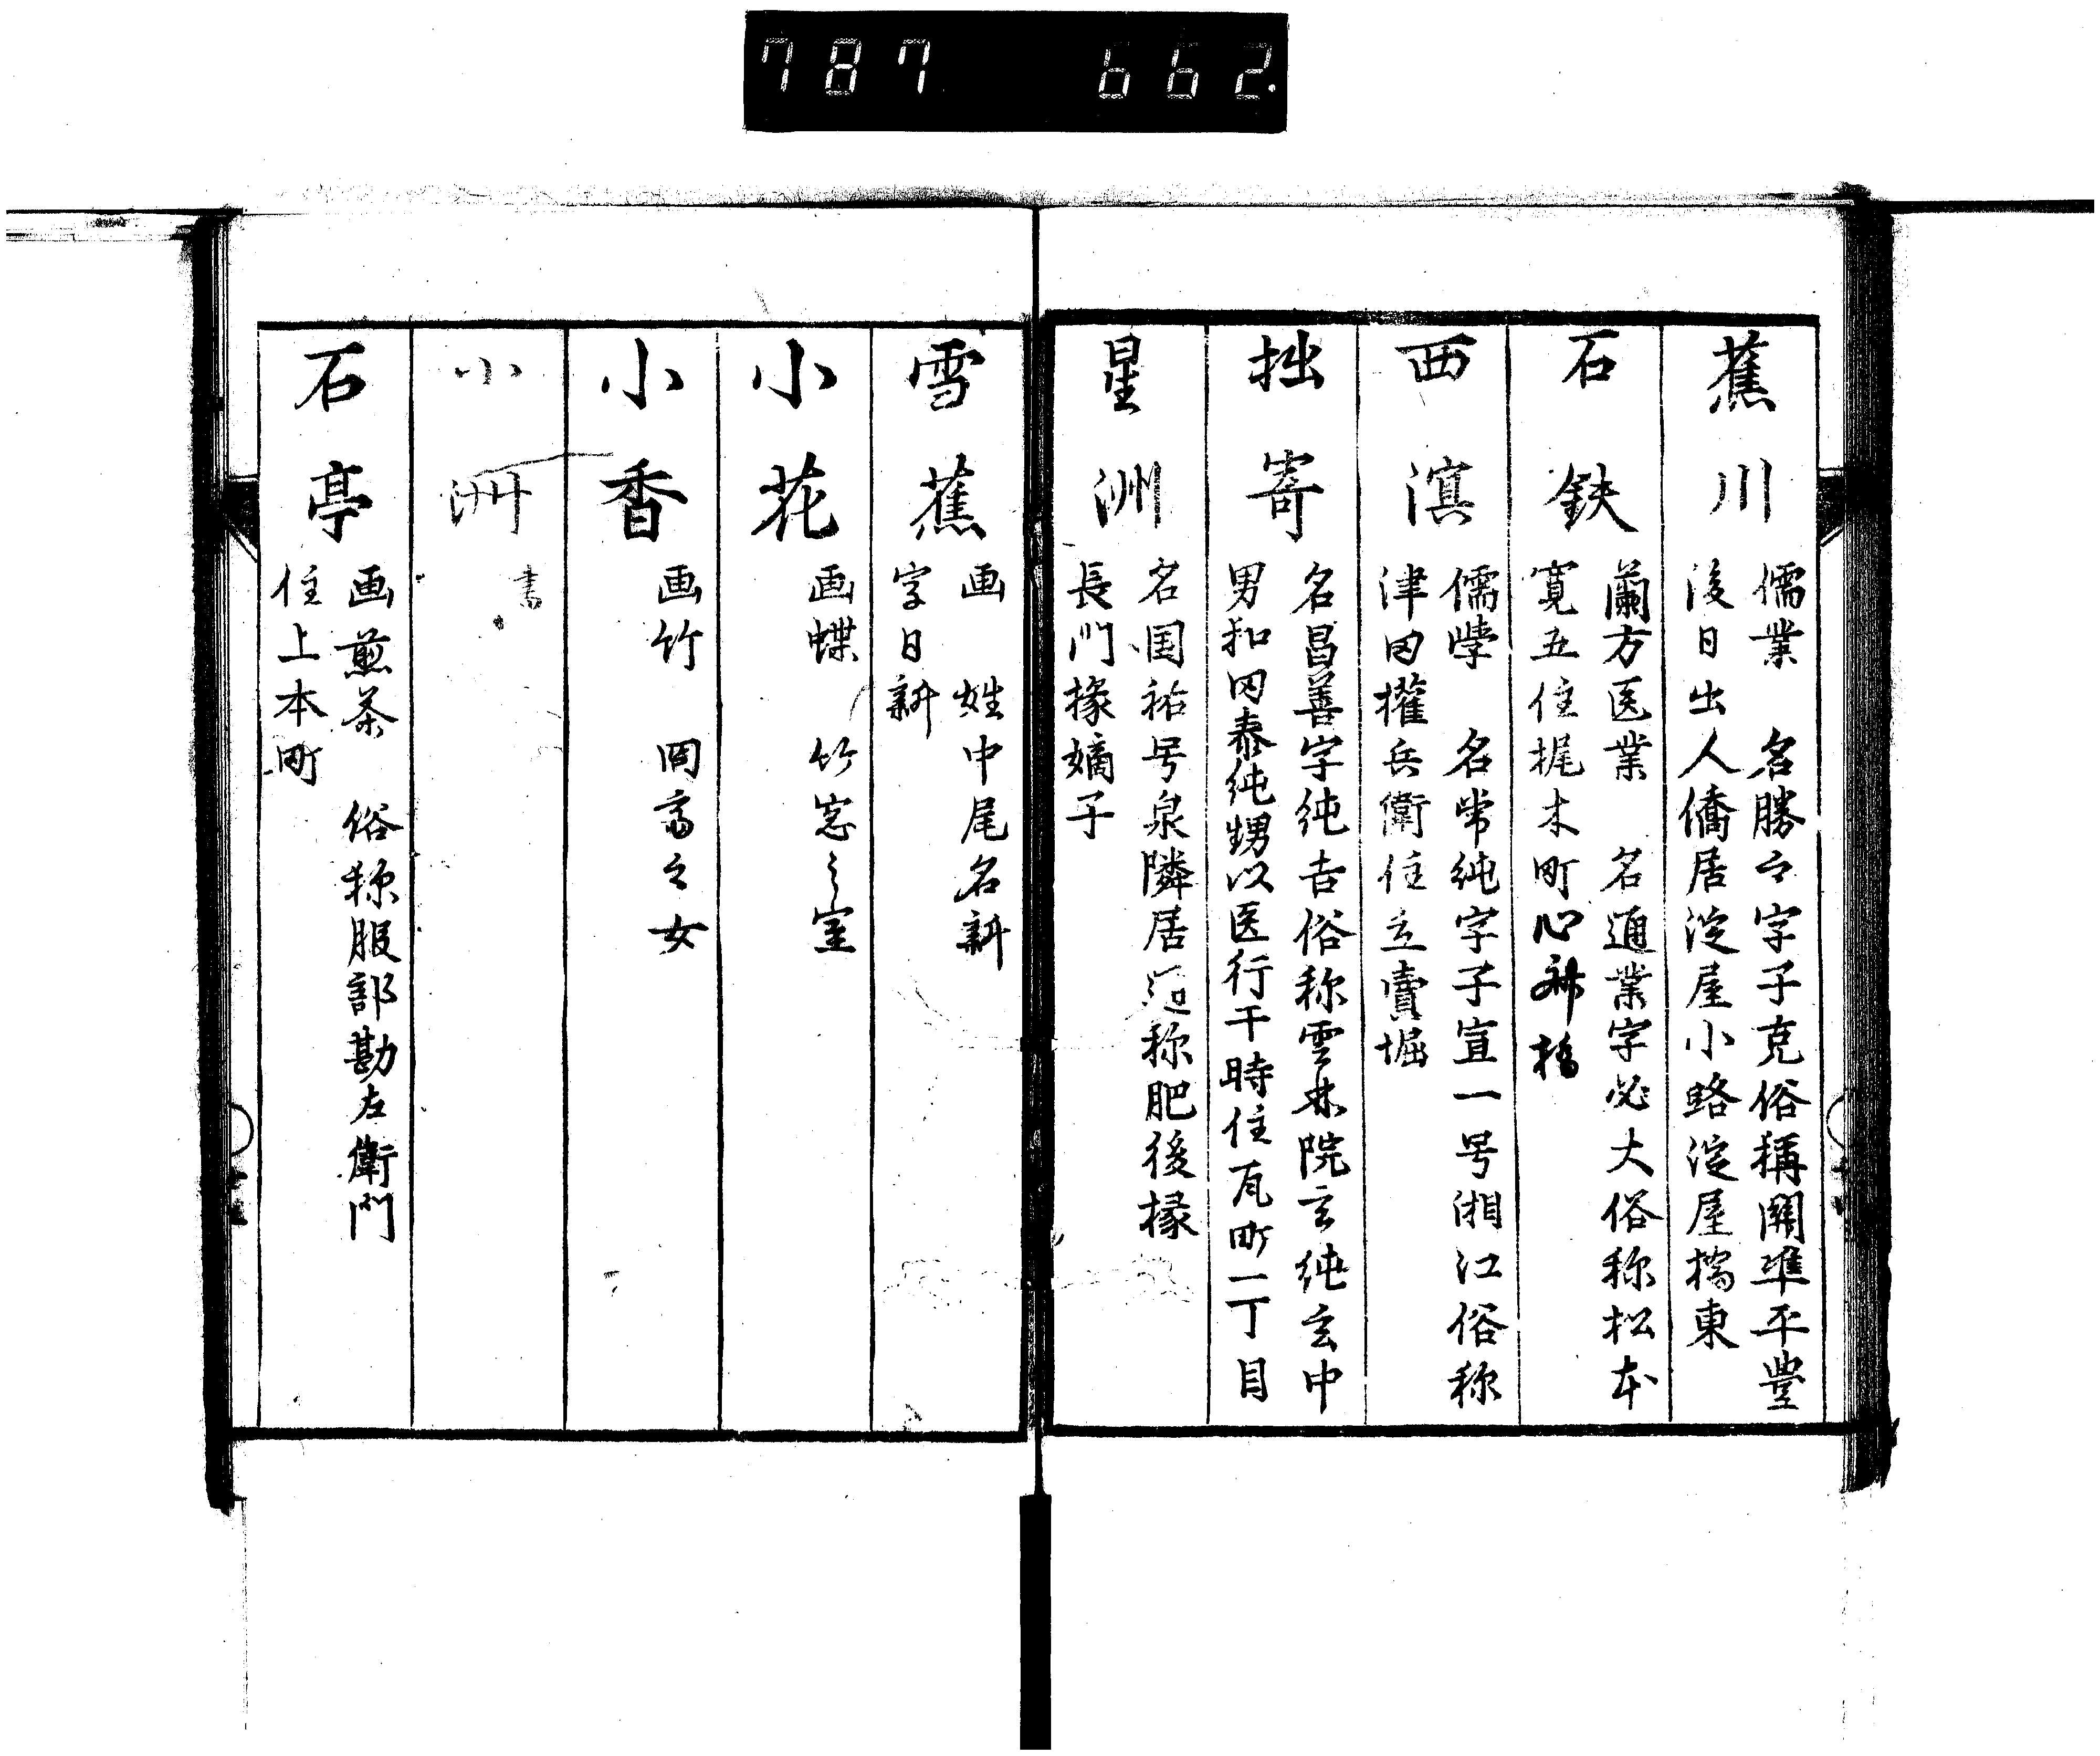 787 662.
蕉川
儒業 名勝之字子克俗稱關準平豊
後日出人僑居淀屋小路淀屋橋東
石鈇
蘭方医業 名通業字必大俗称松本
寛五住梶木町心斎橋
西濵
儒學 名常純字子宣一号湘江俗称
津田權兵衛住立賣堀
拙寄
名昌善字純吉俗称雲林院玄純玄中
男和田泰純甥以医行于時住瓦町二丁目
星洲
名国祐号泉隣居 称肥後掾
長門掾嫡子
雪蕉
画 姓中尾名新
字日新
小花
画蝶 竹窓之室
小香
画竹 岡斎之女
小洲
書
石亭
画煎茶 俗称服部勘左衛門
住上本町